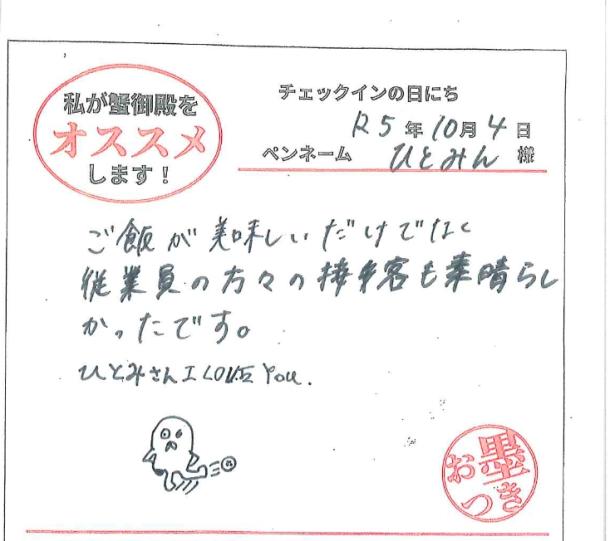 私が蟹御殿を
オススメ
します！
チェックインの日にち
R5年10月4日
ペンネーム ひとみん 様
ご飯が美味しいだけでなく
従業員の方々の接客も素晴らし
かったです。
ひとみさん I LOVE You.
お墨
つき